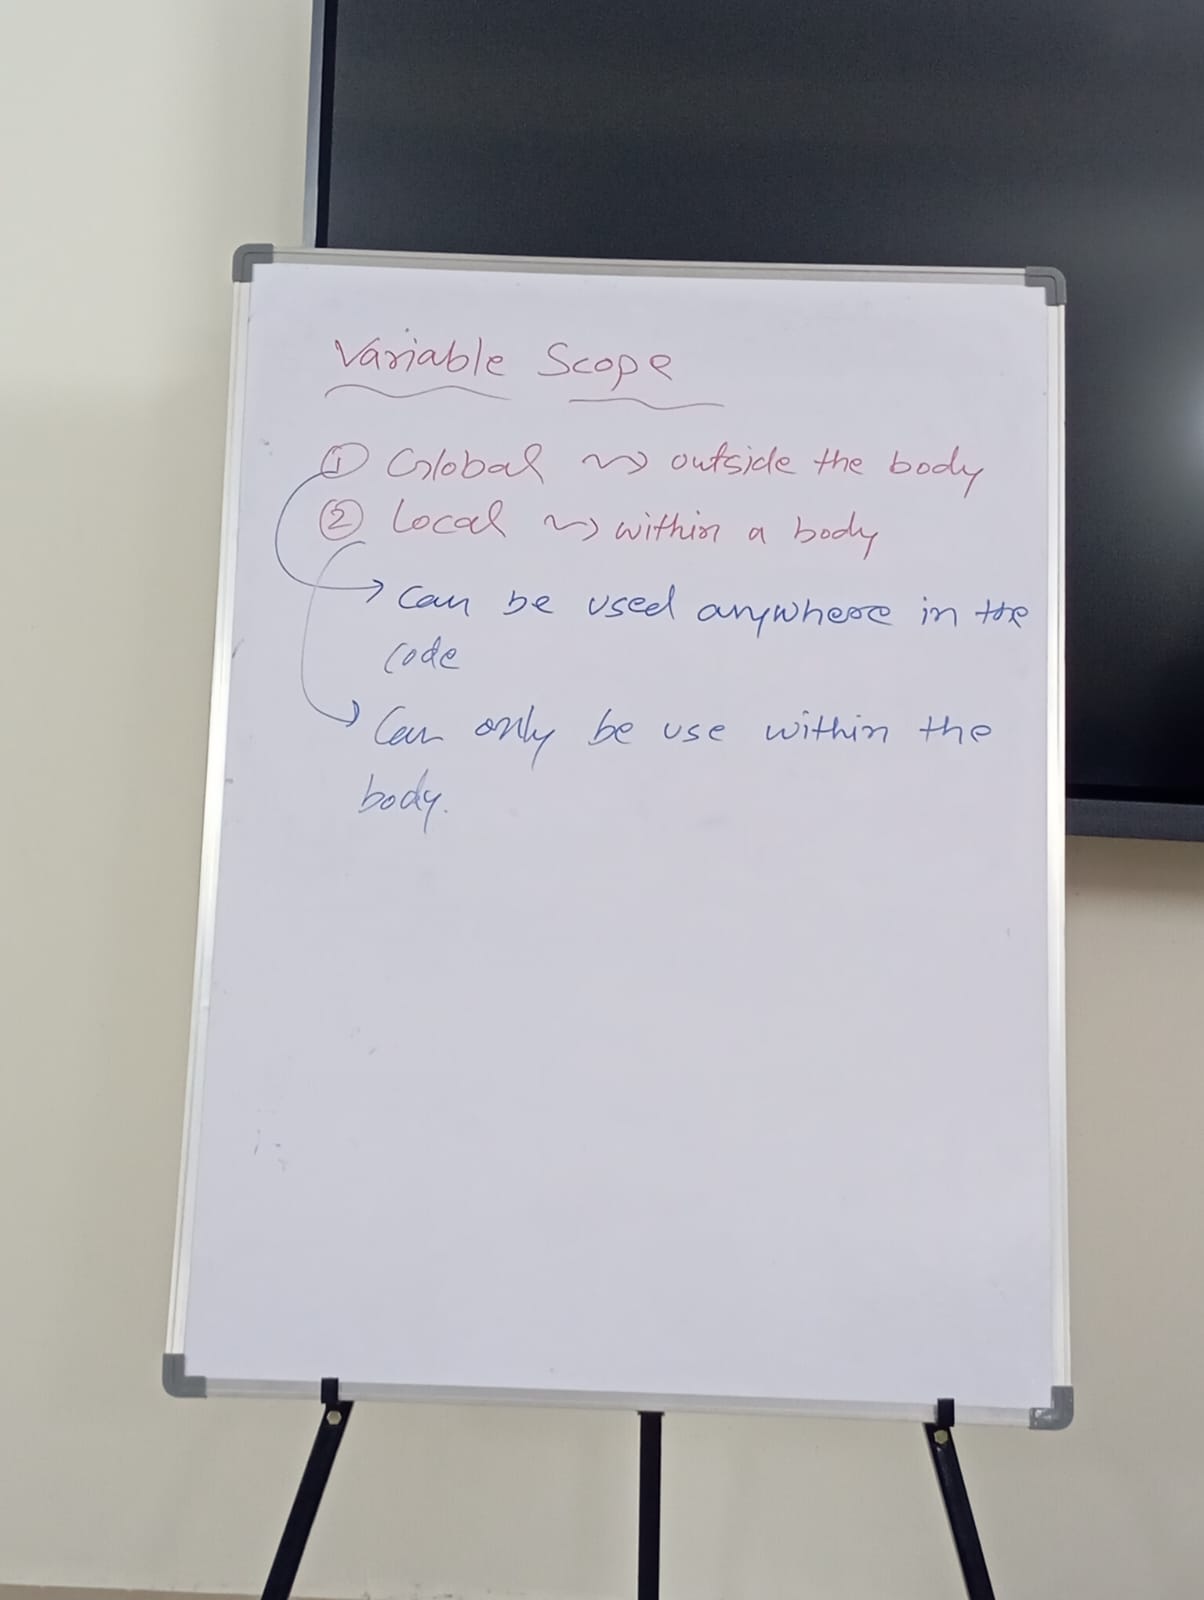 Variable Scope
① Global ~> outside the body
② Local ~> within a body
→ Can be used anywhere in the
code
→ Can only be use within the
body.